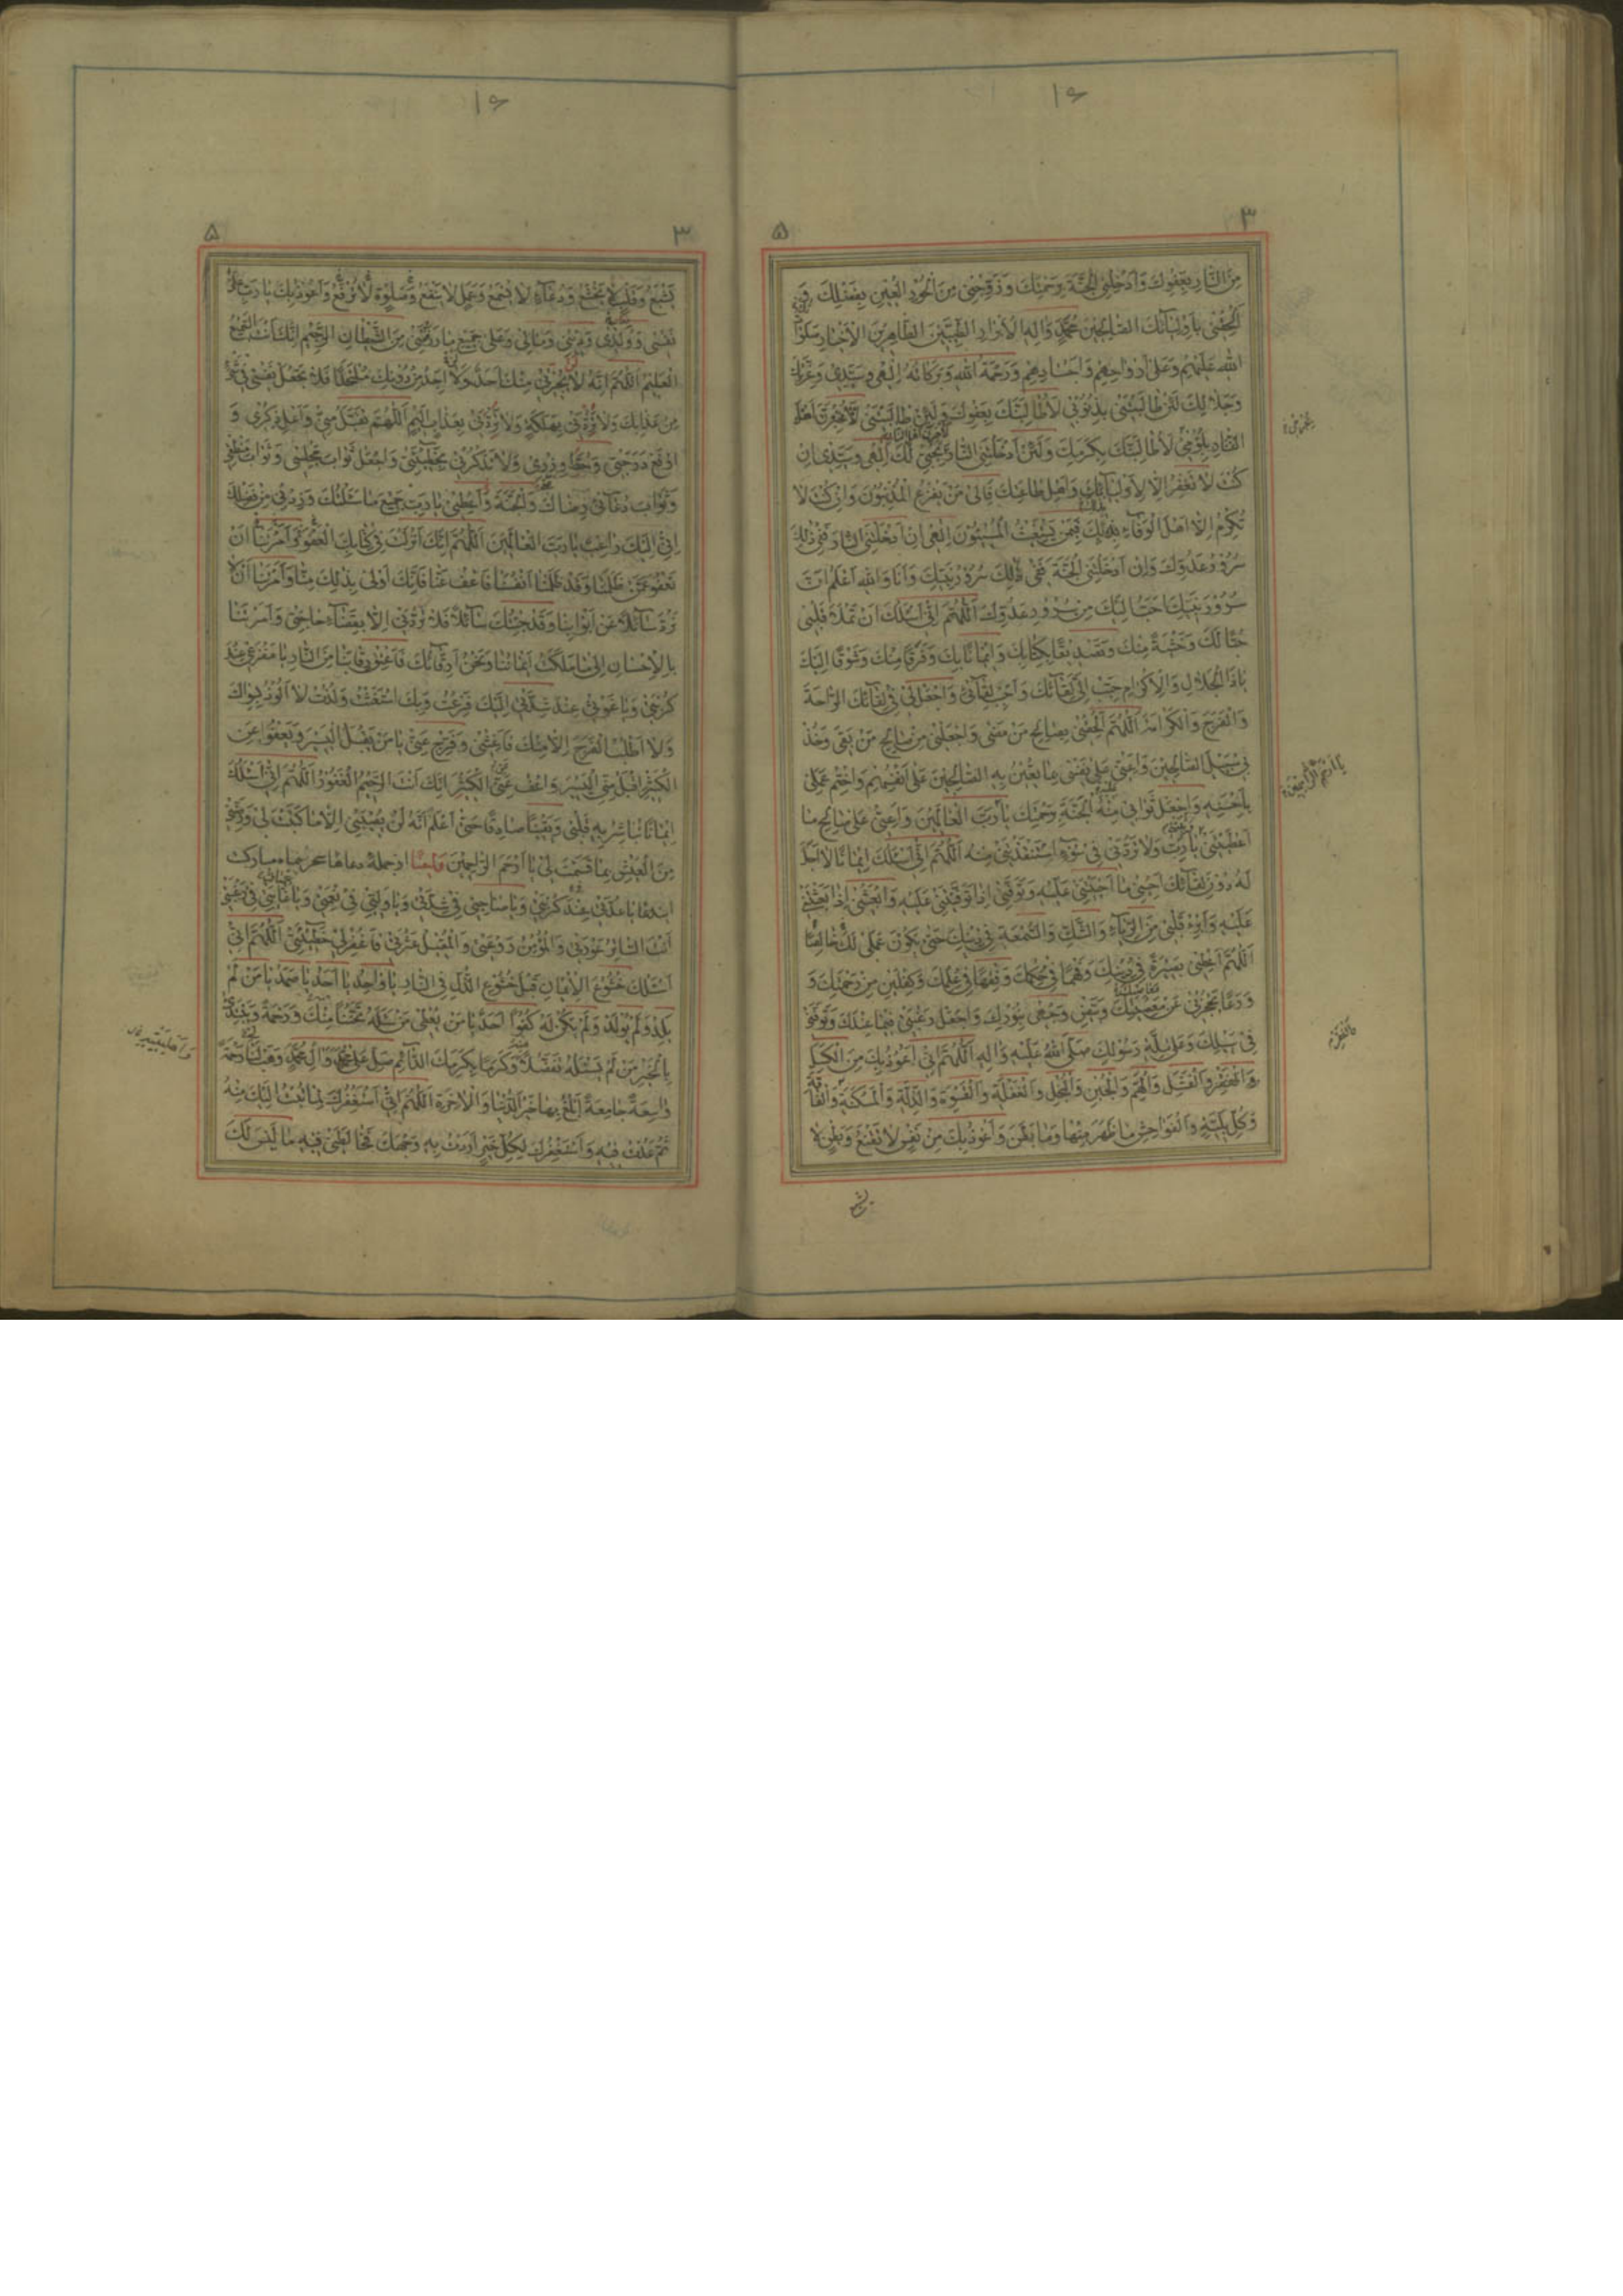 ١۶
٣
۵
مِنَ النّارِ بِعَفْوِكَ وَاَدْخِلْنِى الْجَنَّةَ بِرَحْمَتِكَ وَزَوِّجْنى مِنَ الْحُورِ الْعينِ بِفَضْلِكَ وَ
اَلْحِقْنى بِاَوْلِيآئِكَ الصّالِحينَ مُحَمَّدٍ وَالِهِ الْاَبْرارِ الطَّيِّبينَ الطّاهِرينَ الْاَخْيارِ صَلَواتُ
اللهِ عَلَيْهِمْ وَعَلى اَرْواحِهِمْ وَاَجْسادِهِمْ وَرَحْمَةُ اللهِ وَبَرَكاتُهُ اِلهى وَسَيِّدى وَعِزَّتِكَ
وَجَلالِكَ لَئِنْ طالَبْتَنى بِذُنُوبى لَاُطالِبَنَّكَ بِعَفْوِكَ وَلَئِنْ طالَبْتَنى
بِلُؤْمى لَاُطالِبَنَّكَ بِكَرَمِكَ وَلَئِنْ اَدْخَلْتَنِى النّارَ بِحُبّى لَكَ اِلهى وَسَيِّدى اِنْ
كُنْتَ لا تَغْفِرُ اِلّا لِاَوْلِيآئِكَ وَاَهْلِ طاعَتِكَ فَاِلى مَنْ يَفْزَعُ الْمُذْنِبُونَ وَاِنْ كُنْتَ لا
تُكْرِمُ اِلّا اَهْلَ الْوَفآءِ بِكَ فَبِمَنْ يَسْتَغيثُ الْمُسيئُونَ اِلهى اِنْ اَدْخَلْتَنِى النّارَ فَفى ذلِكَ
سُرُورُ عَدُوِّكَ وَاِنْ اَدْخَلْتَنِى الْجَنَّةَ فَفى ذلِكَ سُرُورُ نَبِيِّكَ وَاَنَا وَاللهِ اَعْلَمُ اَنَّ
سُرُورَ نَبِيِّكَ اَحَبُّ اِلَيْكَ مِنْ سُرُورِ عَدُوِّكَ اَللّهُمَّ اِنّى اَسْئَلُكَ اَنْ تَمْلَاَ قَلْبى
حُبًّا لَكَ وَخَشْيَةً مِنْكَ وَتَصْديقًا بِكِتابِكَ وَايمانًا بِكَ وَفَرَقًا مِنْكَ وَشَوْقًا اِلَيْكَ
يا ذَا الْجَلالِ وَالْاِكْرامِ حَبِّبْ اِلَىَّ لِقآئَكَ وَاَحْبِبْ لِقآئى وَاجْعَلْ لى فى لِقآئِكَ الرّاحَةَ
وَالْفَرَجَ وَالْكَرامَةَ اَللّهُمَّ اَلْحِقْنى بِصالِحِ مَنْ مَضى وَاجْعَلْنى مِنْ صالِحِ مَنْ بَقِىَ وَخُذْ
بى سَبيلَ الصّالِحينَ وَاَعِنّى عَلى نَفْسى بِما تُعينُ بِهِ الصّالِحينَ عَلى اَنْفُسِهِمْ وَاخْتِمْ عَمَلى
بِاَحْسَنِهِ وَاجْعَلْ ثَوابى مِنْهُ الْجَنَّةَ بِرَحْمَتِكَ يا رَبَّ الْعالَمينَ وَاَعِنّى عَلى صالِحِ ما
اَعْطَيْتَنى يا رَبِّ وَلا تَرُدَّنى فى سُوءٍ اسْتَنْقَذْتَنى مِنْهُ اَللّهُمَّ اِنّى اَسْئَلُكَ ايمانًا لا اَجَلَ
لَهُ دُونَ لِقآئِكَ اَحْيِنى ما اَحْيَيْتَنى عَلَيْهِ وَتَوَفَّنى اِذا تَوَفَّيْتَنى عَلَيْهِ وَابْعَثْنى اِذا بَعَثْتَنى
عَلَيْهِ وَاَبْرِءْ قَلْبى مِنَ الرِّيآءِ وَالشَّكِّ وَالسُّمْعَةِ فى دينِكَ حَتّى يَكُونَ عَمَلى لَكَ خالِصًا
اَللّهُمَّ اَعْطِنى بَصيرَةً فى دينِكَ وَفَهْمًا فى حُكْمِكَ وَفِقْهًا فى عِلْمِكَ وَكِفْلَيْنِ مِنْ رَحْمَتِكَ وَ
وَرَعًا يَحْجُزُنى عَنْ مَعْصِيَتِكَ وَبَيِّضْ وَجْهى بِنُورِكَ وَاجْعَلْ رَغْبَتى فيما عِنْدَكَ وَتَوَفَّنى
فى سَبيلِكَ وَعَلى مِلَّةِ رَسُولِكَ صَلَّى اللهُ عَلَيْهِ وَالِهِ اَللّهُمَّ اِنّى اَعُوذُ بِكَ مِنَ الْكَسَلِ
وَالْفَشَلِ وَالْهَمِّ وَالْجُبْنِ وَالْبُخْلِ وَالْغَفْلَةِ وَالْقَسْوَةِ وَالذِّلَّةِ وَالْمَسْكَنَةِ وَالْفاقَةِ
وَكُلِّ بَلِيَّةٍ وَالْفَواحِشِ ما ظَهَرَ مِنْها وَما بَطَنَ وَاَعُوذُ بِكَ مِنْ نَفْسٍ لا تَقْنَعُ وَبَطْنٍ لا
يا اَرْحَمَ الرّاحِمينَ
١۶
٣
۵
يَشْبَعُ وَقَلْبٍ لا يَخْشَعُ وَدُعآءٍ لا يُسْمَعُ وَعَمَلٍ لا يَنْفَعُ وَصَلوةٍ لا تُرْفَعُ وَاَعُوذُ بِكَ يا رَبِّ عَلى
نَفْسى وَوَلَدى وَدينى وَمالى وَعَلى جَميعِ ما رَزَقْتَنى مِنَ الشَّيْطانِ الرَّجيمِ اِنَّكَ اَنْتَ السَّميعُ
الْعَليمُ اَللّهُمَّ اِنَّهُ لا يُجيرُنى مِنْكَ اَحَدٌ وَلا اَجِدُ مِنْ دُونِكَ مُلْتَحَدًا فَلا تَجْعَلْ نَفْسى فى شَىْءٍ
مِنْ عَذابِكَ وَلا تَرُدَّنى بِهَلَكَةٍ وَلا تَرُدَّنى بِعَذابٍ اَليمٍ اَللّهُمَّ تَقَبَّلْ مِنّى وَاَعْلِ ذِكْرى وَ
ارْفَعْ دَرَجَتى وَحُطَّ وِزْرى وَلا تَذْكُرْنى بِخَطيئَتى وَاجْعَلْ ثَوابَ مَجْلِسى وَثَوابَ مَنْطِقى
وَثَوابَ دُعآئى رِضاكَ وَالْجَنَّةَ وَاَعْطِنى يا رَبِّ جَميعَ ما سَئَلْتُكَ وَزِدْنى مِنْ فَضْلِكَ
اِنّى اِلَيْكَ راغِبٌ يا رَبَّ الْعالَمينَ اَللّهُمَّ اِنَّكَ اَنْزَلْتَ فى كِتابِكَ الْعَفْوَ وَاَمَرْتَنا اَنْ
نَعْفُوَ عَمَّنْ ظَلَمَنا وَقَدْ ظَلَمْنا اَنْفُسَنا فَاعْفُ عَنّا فَاِنَّكَ اَوْلى بِذلِكَ مِنّا وَاَمَرْتَنا اَنْ لا
نَرُدَّ سآئِلًا عَنْ اَبْوابِنا وَقَدْ جِئْتُكَ سآئِلًا فَلا تَرُدَّنى اِلّا بِقَضآءِ حاجَتى وَاَمَرْتَنا
بِالْاِحْسانِ اِلى ما مَلَكَتْ اَيْمانُنا وَنَحْنُ اَرِقّآئُكَ فَاَعْتِقْ رِقابَنا مِنَ النّارِ يا مَفْزَعى عِنْدَ
كُرْبَتى وَيا غَوْثى عِنْدَ شِدَّتى اِلَيْكَ فَزِعْتُ وَبِكَ اسْتَغَثْتُ وَلُذْتُ لا اَلُوذُ بِسِواكَ
وَلا اَطْلُبُ الْفَرَجَ اِلّا مِنْكَ فَاَغِثْنى وَفَرِّجْ عَنّى يا مَنْ يَقْبَلُ الْيَسيرَ وَيَعْفُوا عَنِ
الْكَثيرِ اِقْبَلْ مِنِّى الْيَسيرَ وَاعْفُ عَنِّى الْكَثيرَ اِنَّكَ اَنْتَ الرَّحيمُ الْغَفُورُ اَللّهُمَّ اِنّى اَسْئَلُكَ
ايمانًا تُباشِرُ بِهِ قَلْبى وَيَقينًا صادِقًا حَتّى اَعْلَمَ اَنَّهُ لَنْ يُصيبَنى اِلّا ما كَتَبْتَ لى وَرَضِّنى
مِنَ الْعَيْشِ بِما قَسَمْتَ لى يا اَرْحَمَ الرّاحِمينَ وَايضًا از جمله دعاهاى سحر ماه مبارك
اين دعا يا عُدَّتى عِنْدَ كُرْبَتى وَيا صاحِبى فى شِدَّتى وَيا وَلِيّى فى نِعْمَتى وَيا غايَتى فى رَغْبَتى
اَنْتَ السّاتِرُ عَوْرَتى وَالْمُؤْمِنُ رَوْعَتى وَالْمُقيلُ عَثْرَتى فَاغْفِرْ لى خَطيئَتى اَللّهُمَّ اِنّى
اَسْئَلُكَ خُشُوعَ الْايمانِ قَبْلَ خُشُوعِ الذُّلِّ فِى النّارِ يا واحِدُ يا اَحَدُ يا صَمَدُ يا مَنْ لَمْ
يَلِدْ وَلَمْ يُولَدْ وَلَمْ يَكُنْ لَهُ كُفُوًا اَحَدٌ يا مَنْ يُعْطى مَنْ سَئَلَهُ تَحَنُّنًا مِنْهُ وَرَحْمَةً وَيَبْتَدِئُ
بِالْخَيْرِ مَنْ لَمْ يَسْئَلْهُ تَفَضُّلًا وَكَرَمًا بِكَرَمِكَ الدّآئِمِ صَلِّ عَلى مُحَمَّدٍ وَالِ مُحَمَّدٍ وَهَبْ لى رَحْمَةً
واسِعَةً جامِعَةً اَبْلُغُ بِها خَيْرَ الدُّنْيا وَالْاخِرَةِ اَللّهُمَّ اِنّى اَسْتَغْفِرُكَ لِما تُبْتُ اِلَيْكَ مِنْهُ
ثُمَّ عُدْتُ فيهِ وَاَسْتَغْفِرُكَ لِكُلِّ خَيْرٍ اَرَدْتُ بِهِ وَجْهَكَ فَخالَطَنى فيهِ ما لَيْسَ لَكَ